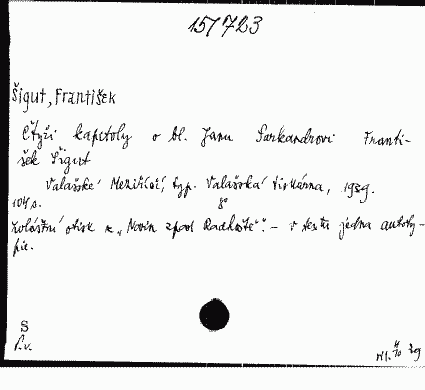 151723
Šigut, František
Čtyři kapitoly o bl. Janu Sarkandrovi Franti-
šek Šigut
Valašské Meziříčí, typ. Valašská tiskárna, 1939.
104 s. 8°
Zvláštní otisk z „Novin zpod Radhoště“. – V textu jedna autoty-
pie.
S
P.v.